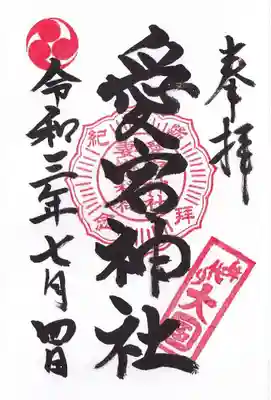 奉拝
愛宮神社
令和三年七月四日
大国